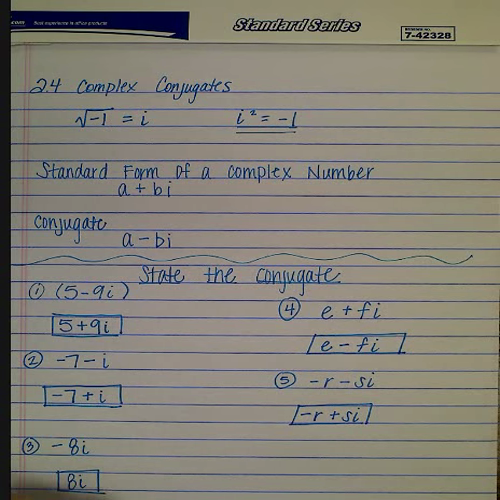 .com Best experience in office products
Standard Series
7-42328
2.4 Complex Conjugates
√-1 = i
i² = -1
Standard Form Of a complex Number
a + bi
Conjugate
a - bi
State the conjugate.
① (5-9i)
5+9i
② -7-i
-7+i
③ -8i
8i
④ e + fi
e - fi
⑤ -r - si
-r + si